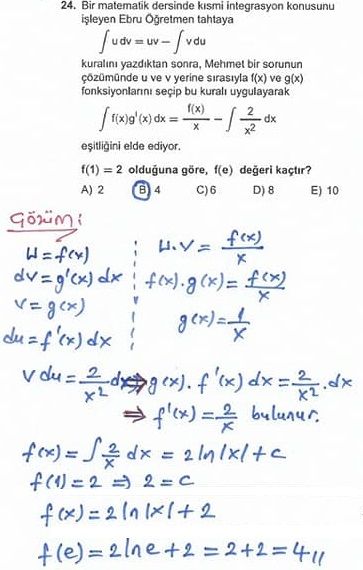 24. Bir matematik dersinde kısmi integrasyon konusunu
işleyen Ebru Öğretmen tahtaya
∫ u dv = uv − ∫ v du
kuralını yazdıktan sonra, Mehmet bir sorunun
çözümünde u ve v yerine sırasıyla f(x) ve g(x)
fonksiyonlarını seçip bu kuralı uygulayarak
∫ f(x)g'(x) dx = f(x)/x − ∫ 2/x² dx
eşitliğini elde ediyor.
f(1) = 2 olduğuna göre, f(e) değeri kaçtır?
A) 2 B) 4 C) 6 D) 8 E) 10
Çözüm:
u = f(x)
dv = g'(x) dx
v = g(x)
du = f'(x) dx
u.v = f(x)/x
f(x).g(x) = f(x)/x
g(x) = 1/x
v du = 2/x² dx ⇒ g(x). f'(x) dx = 2/x² . dx
⇒ f'(x) = 2/x bulunur.
f(x) = ∫ 2/x dx = 2 ln|x| + c
f(1) = 2 ⇒ 2 = c
f(x) = 2 ln|x| + 2
f(e) = 2 ln e + 2 = 2 + 2 = 4 //